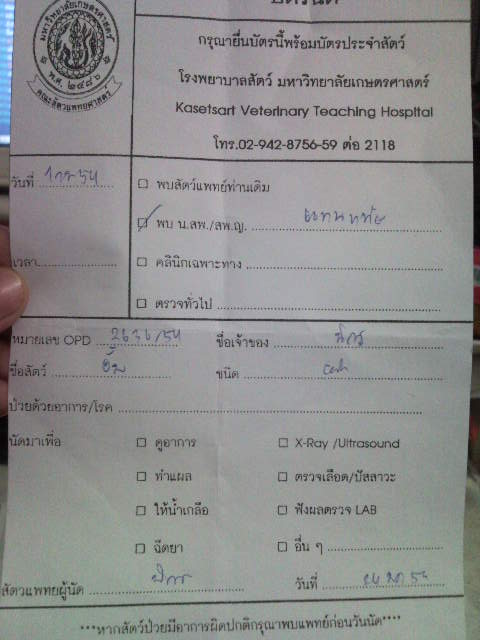 มหาวิทยาลัยเกษตรศาสตร์
พ.ศ. ๒๔๘๖
คณะสัตวแพทยศาสตร์
กรุณายื่นบัตรนี้พร้อมบัตรประจำสัตว์
โรงพยาบาลสัตว์ มหาวิทยาลัยเกษตรศาสตร์
Kasetsart Veterinary Teaching Hospital
โทร.02-942-8756-59 ต่อ 2118
วันที่
พบสัตวแพทย์ท่านเดิม
พบ น.สพ./สพ.ญ.
เวลา
คลินิกเฉพาะทาง
ตรวจทั่วไป
หมายเลข OPD 2636/54 ชื่อเจ้าของ
ชื่อสัตว์ ชนิด
ป่วยด้วยอาการ/โรค
นัดมาเพื่อ ดูอาการ X-Ray /Ultrasound
ทำแผล ตรวจเลือด/ปัสสาวะ
ให้น้ำเกลือ ฟังผลตรวจ LAB
ฉีดยา อื่น ๆ
สัตวแพทย์ผู้นัด วันที่
***หากสัตว์ป่วยมีอาการผิดปกติกรุณาพบแพทย์ก่อนวันนัด****